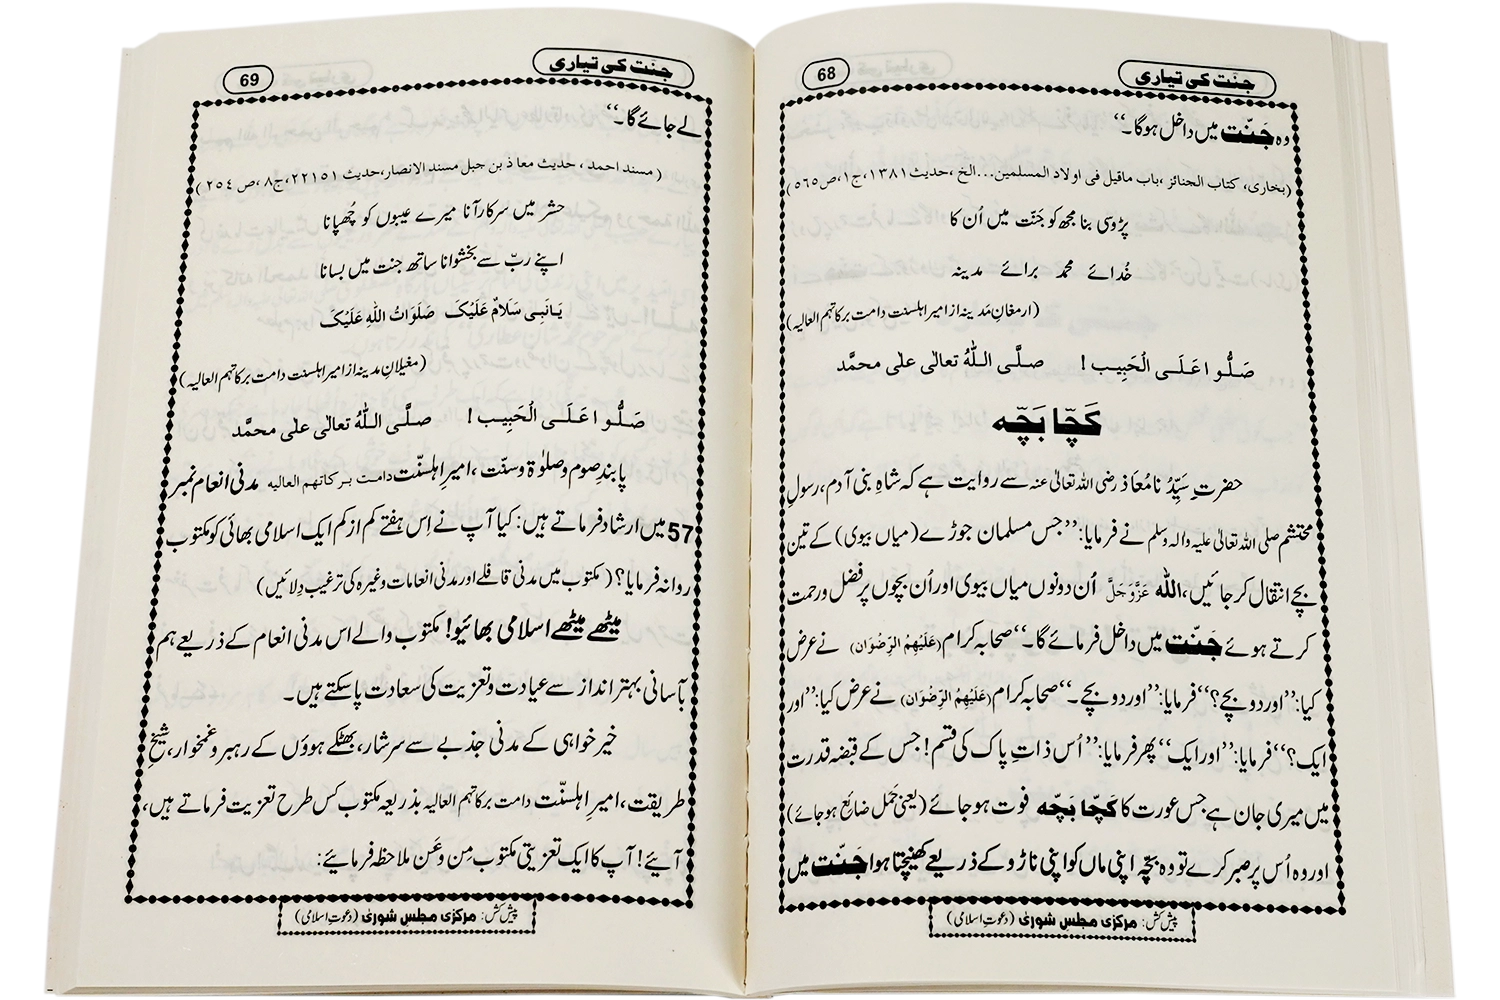 جنّت کی تیاری
68
وہ جَنّت میں داخل ہوگا۔‘‘
(بخاری، کتاب الجنائز ،باب ماقیل فی اولاد المسلمین...الخ ،حدیث۱۳۸۱،ج۱،ص۵٦۵)
پڑوسی بنا مجھ کو جَنّت میں اُن کا
خُدائے محمد برائے مدینہ
(ارمغانِ مَدینہ از امیرِ اہلسنت دامت برکاتہم العالیہ)
صَلُّوا عَلَی الْحَبِیب! صلَّی اللّٰہُ تعالٰی علٰی محمَّد
کَچّا بَچّہ
حضرتِ سَیِّدُ نا مُعَاذ رضی اللہ تعالیٰ عنہ سے روایت ہے کہ شاہِ بنی آدم، رسولِ
محتشم صلی اللہ تعالیٰ علیہ والہ وسلم نے فرمایا:’’جس مسلمان جوڑے (میاں بیوی) کے تین
بچے انتقال کر جائیں،اللہ عَزَّوَجَلَّ اُن دونوں میاں بیوی اور اُن بچوں پر فضل و رحمت
کرتے ہوئے جَنّت میں داخل فرمائے گا۔‘‘صحابہ کرام (عَلَیْہِمُ الرِّضْوَان) نے عرض
کیا:’’اور دو بچے؟‘‘فرمایا:’’اور دو بچے۔‘‘صحابہ کرام (عَلَیْہِمُ الرِّضْوَان) نے عرض کیا:’’اور
ایک؟‘‘فرمایا:’’اور ایک‘‘ پھر فرمایا:’’اُس ذاتِ پاک کی قسم! جس کے قبضہ قدرت
میں میری جان ہے جس عورت کا کَچّا بَچّہ فوت ہو جائے (یعنی حَمْل ضائع ہوجائے)
اور وہ اُس پر صبر کرے تو وہ بچّہ اپنی ماں کو اپنی ناڑو کے ذریعے کھینچتا ہوا جَنّت میں
پیش کش: مرکزی مجلسِ شوریٰ (دعوتِ اسلامی)
جنّت کی تیاری
69
لے جائے گا۔‘‘
(مسند احمد ، حدیث معاذ بن جبل مسند الانصار،حدیث ۲۲۱۵۱،ج۸،ص ۲۵٤)
حشر میں سرکار آنا میرے عیبوں کو چُھپانا
اپنے ربّ سے بخشوانا ساتھ جنت میں بسانا
یَانَبِی سَلَامٌ عَلَیْکَ صَلَوَاتُ اللّٰہِ عَلَیْکَ
(مغیلانِ مدینہ از امیرِ اہلسنت دامت برکاتہم العالیہ)
صَلُّوا عَلَی الْحَبِیب! صلَّی اللّٰہُ تعالٰی علٰی محمَّد
پابندِ صوم و صلوٰۃ و سنّت ،امیرِ اہلسنّت دامت برکاتہم العالیہ مدنی انعام نمبر
57 میں ارشاد فرماتے ہیں: کیا آپ نے اِس ہفتے کم از کم ایک اسلامی بھائی کو مکتوب
روانہ فرمایا؟ (مکتوب میں مدنی قافلے اور مدنی انعامات وغیرہ کی ترغیب دِلائیں)
میٹھے میٹھے اسلامی بھائیو! مکتوب والے اس مدنی انعام کے ذریعے ہم
بآسانی بہتر انداز سے عیادت و تعزیت کی سعادت پاسکتے ہیں۔
خیر خواہی کے مدنی جذبے سے سرشار، بھٹکے ہوؤں کے رہبر و غمخوار، شیخِ
طریقت،امیرِ اہلسنّت دامت برکاتہم العالیہ بذریعہ مکتوب کس طرح تعزیت فرماتے ہیں،
آئیے! آپ کا ایک تعزیتی مکتوب مِن و عَن ملاحظہ فرمائیے:
پیش کش: مرکزی مجلسِ شوریٰ (دعوتِ اسلامی)